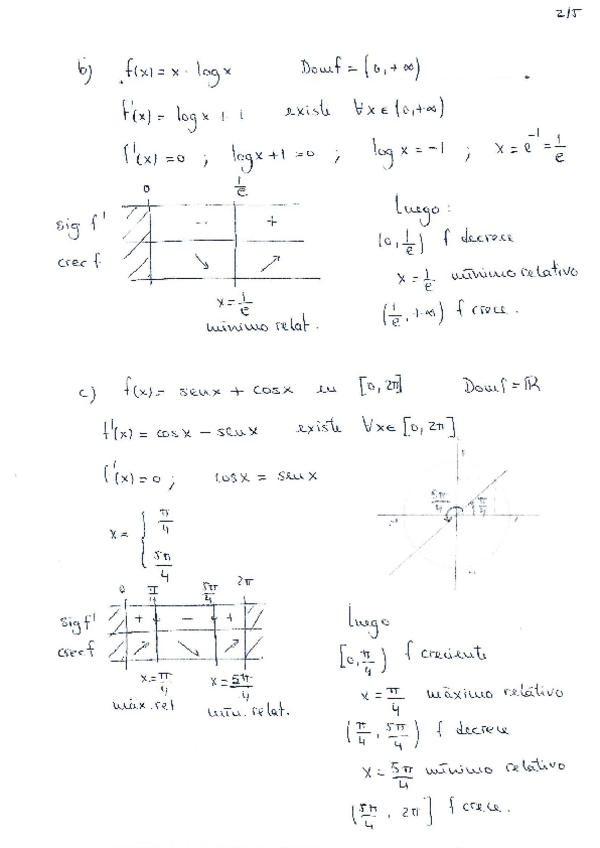 2/5
b) f(x) = x · logx Domf = (0, +∞)
f'(x) = logx + 1 existe ∀x ∈ (0, +∞)
f'(x) = 0 ; logx + 1 = 0 ; logx = -1 ; x = e^-1 = 1/e
0 1/e
sig f' - +
crec f ↘ ↗
x = 1/e
mínimo relat.
Luego:
(0, 1/e) f decrece
x = 1/e mínimo relativo
(1/e, +∞) f crece.
c) f(x) = senx + cosx en [0, 2π] Domf = ℝ
f'(x) = cosx - senx existe ∀x ∈ [0, 2π]
f'(x) = 0 ; cosx = senx
x = { π/4
5π/4
5π/4 π/4
0 π/4 5π/4 2π
sig f' + - +
crec f ↗ ↘ ↗
x = π/4 x = 5π/4
máx. rel mín. relat.
Luego
[0, π/4) f creciente
x = π/4 máximo relativo
(π/4, 5π/4) f decrece
x = 5π/4 mínimo relativo
(5π/4, 2π] f crece.